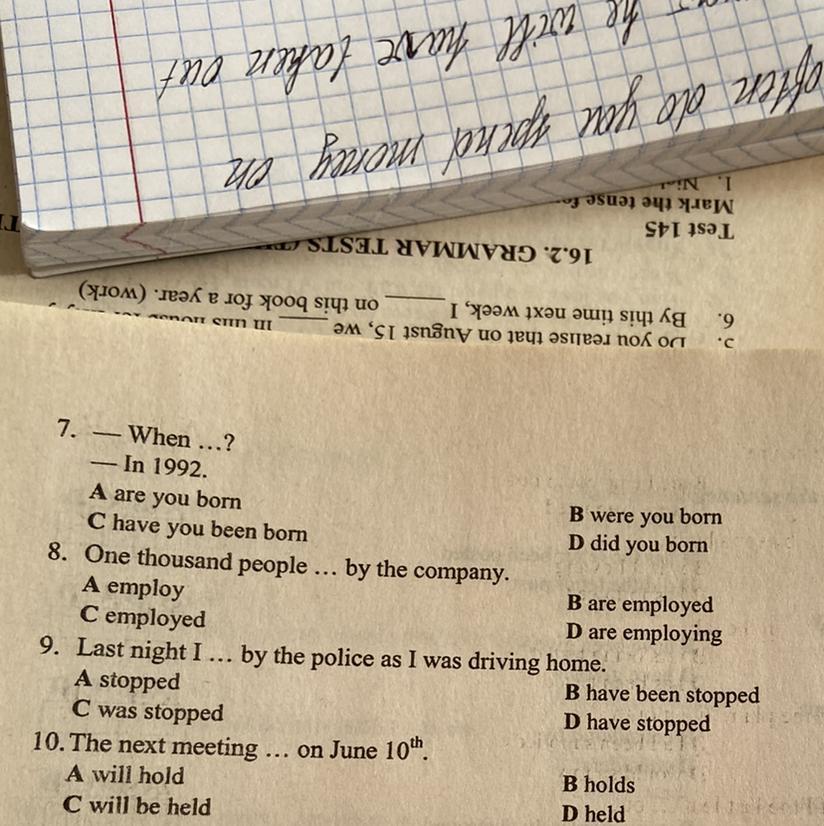 7. — When ...?
— In 1992.
A are you born
B were you born
C have you been born
D did you born
8. One thousand people ... by the company.
A employ
B are employed
C employed
D are employing
9. Last night I ... by the police as I was driving home.
A stopped
B have been stopped
C was stopped
D have stopped
10. The next meeting ... on June 10th.
A will hold
B holds
C will be held
D held
5. Do you realise that on August 15, we ____ in this
6. By this time next week, I ____ on this book for a year. (work)
16.2. GRAMMAR TESTS
Test 145
Mark the tense
1.
often do you spend money on
he will have taken out